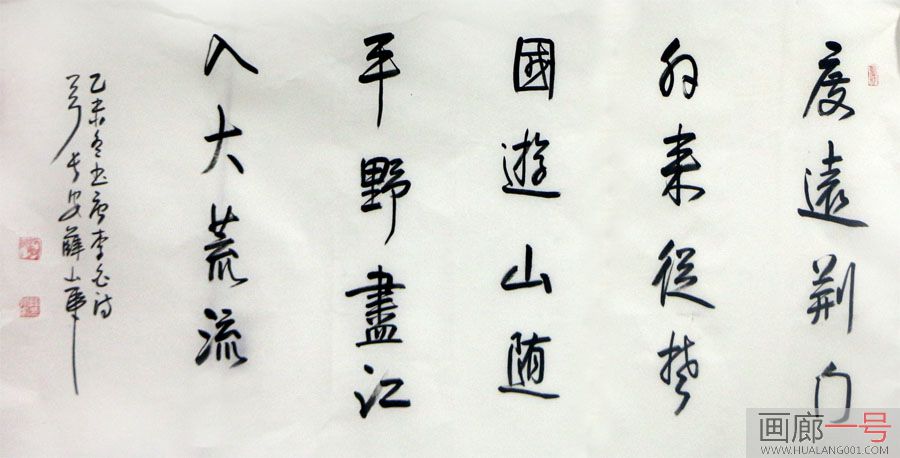 度遠荆门
外来從楚
國遊山随
平野盡江
入大荒流
乙未冬书唐李白詩
于长安薛小军
画廊一号
WWW.HUALANG001.COM